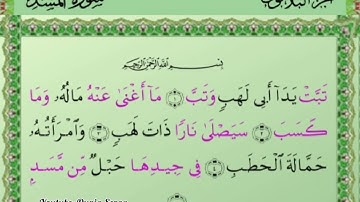 سورة المسد
بسم الله الرحمن الرحيم
تَبَّتْ يَدَآ أَبِي لَهَبٍ وَتَبَّ ١ مَآ أَغْنَىٰ عَنْهُ مَالُهُۥ وَمَا
كَسَبَ ٢ سَيَصْلَىٰ نَارًا ذَاتَ لَهَبٍ ٣ وَٱمْرَأَتُهُۥ
حَمَّالَةَ ٱلْحَطَبِ ٤ فِي جِيدِهَا حَبْلٌ مِّن مَّسَدٍ